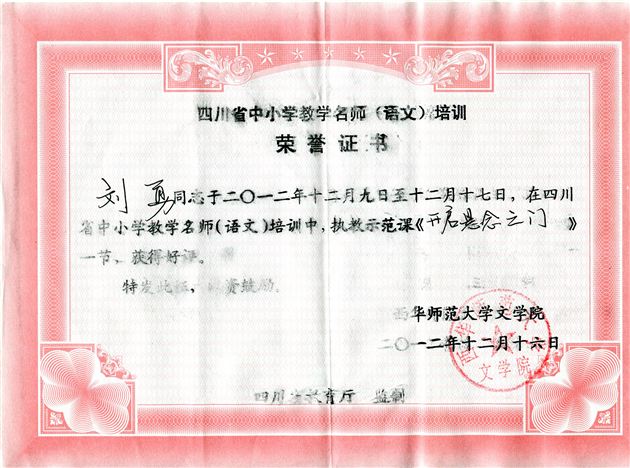 四川省中小学教学名师（语文）培训
荣誉证书
刘勇同志于二〇一二年十二月九日至十二月十七日，在四川
省中小学教学名师（语文）培训中，执教示范课《开启悬念之门》
一节、获得好评。
特发此证，以资鼓励。
西华师范大学文学院
二〇一二年十二月十六日
四川省教育厅 监制